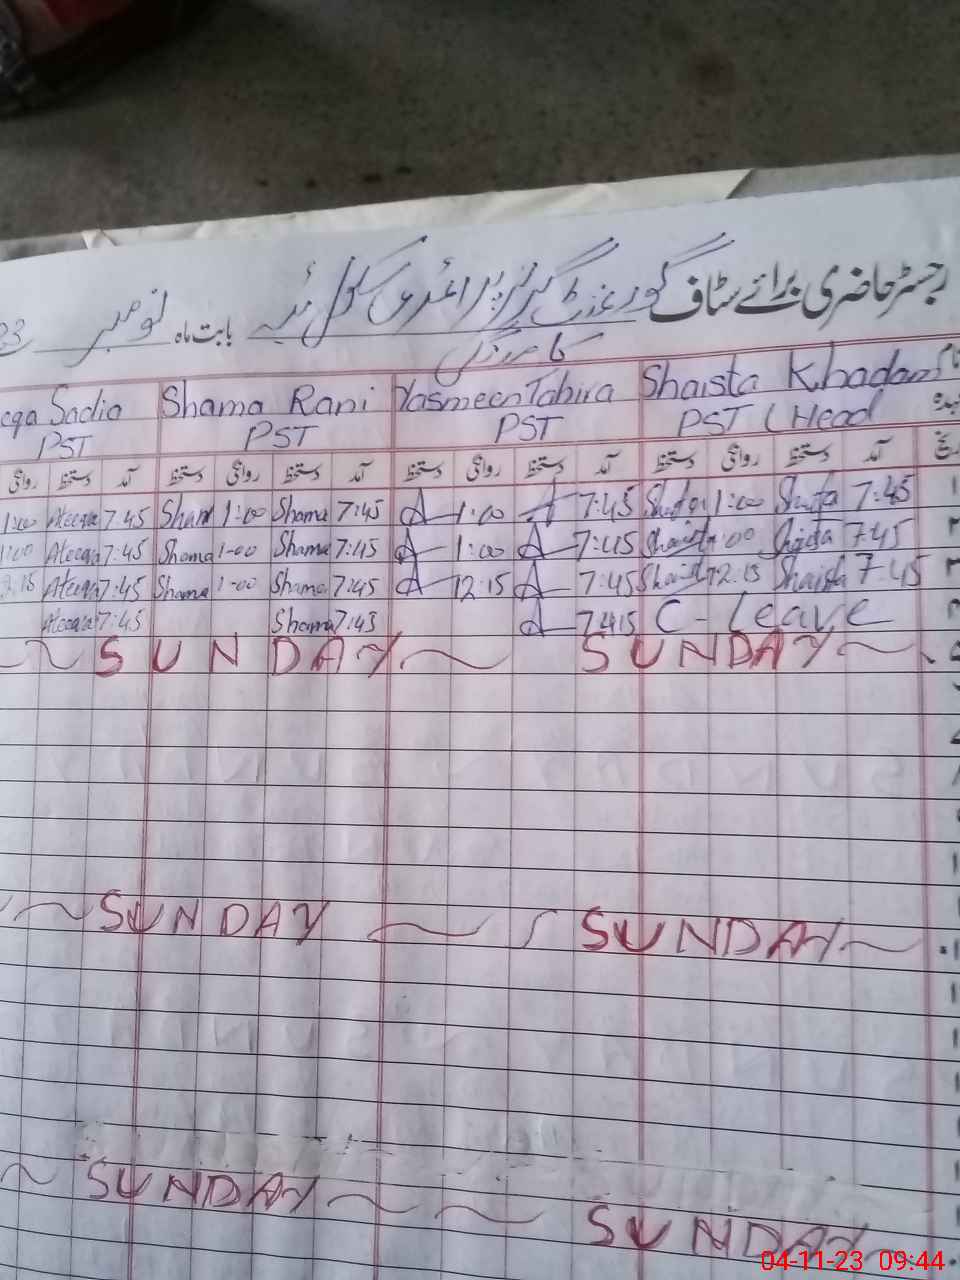 رجسٹر حاضری برائے سٹاف گورنمنٹ گرلز پرائمری سکول بابت ماہ نومبر 23
Shaista Khadam Yasmeen Tahira Shama Rani eeqa Sadia
PST (Head PST PST PST
آمد دستخط روانگی دستخط آمد دستخط روانگی دستخط آمد دستخط روانگی دستخط آمد دستخط روانگی
7:45 Shaista 1:00 Shaista 7:45 A 1:00 A 7:45 Shama 1:00 Sham 7:45 Ateeqa 1:00
7:45 Shaista 1:00 Shaista 7:45 A 1:00 A 7:45 Shama 1-00 Shama 7:45 Ateeqa 1:00
7:45 Shaista 12:15 Shaista 7:45 A 12:15 A 7:45 Shama 1-00 Shama 7:45 Ateeqa :15
C - Leave 7:45 A 7:45 Shama 7:45 Ateeqa
SUNDAY SUNDAY
SUNDAY SUNDAY
SUNDAY SUNDAY
04-11-23 09:44